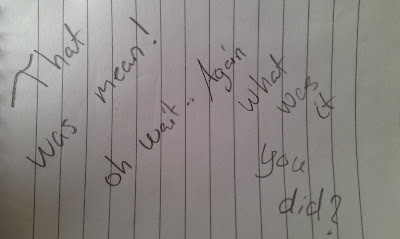 That
was mean!
oh wait.. Again
what
was
it
you
did?